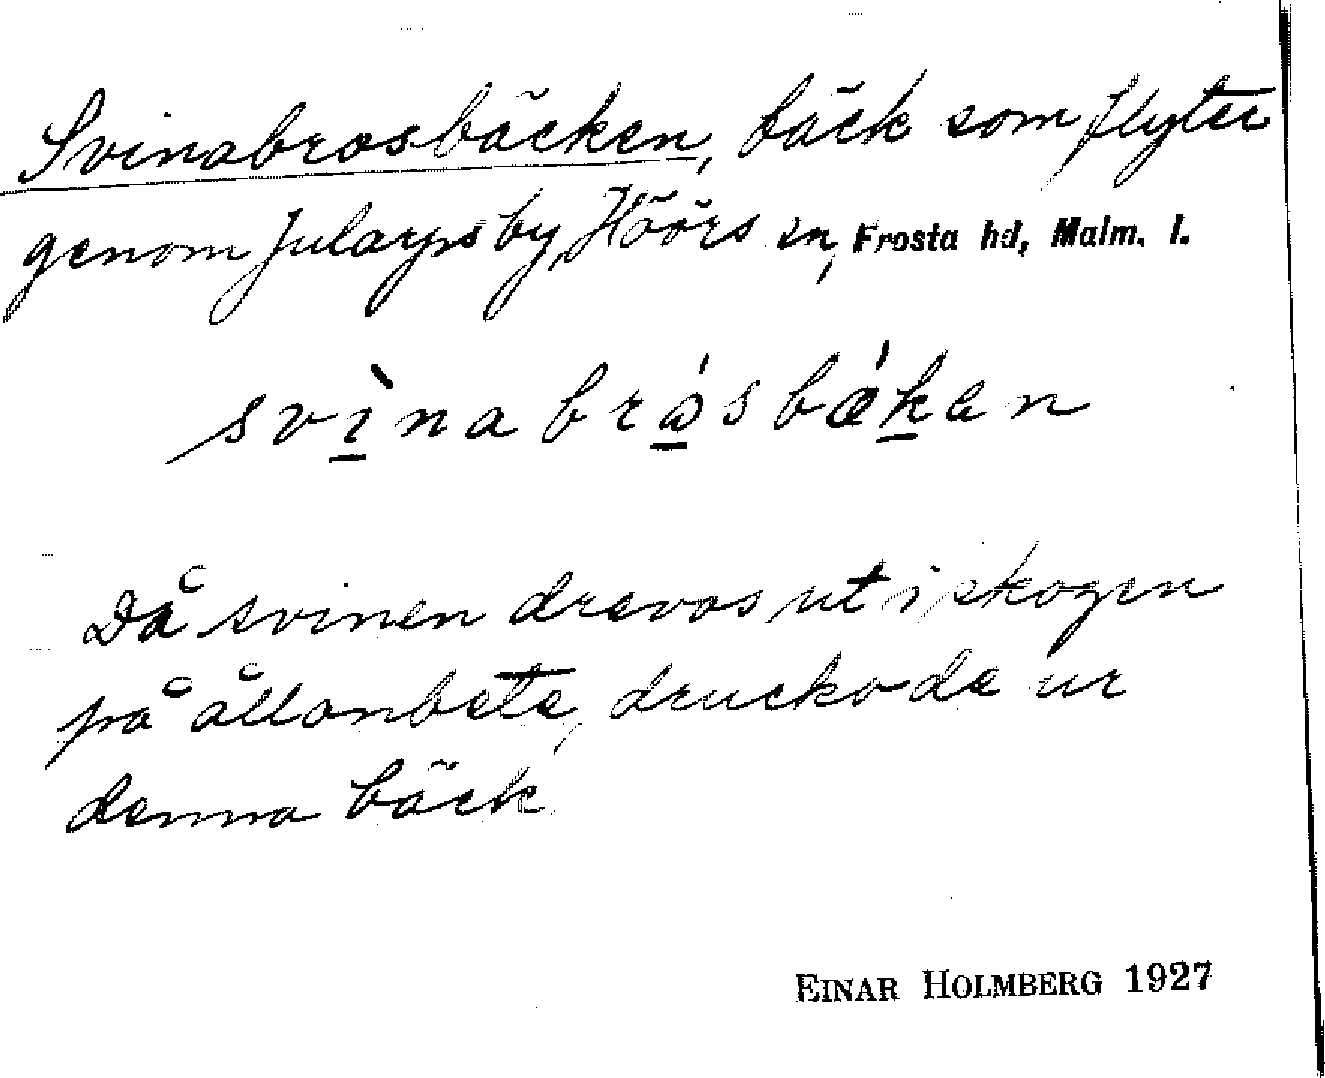 Svinabrosbäcken, bäck som flyter
genom Jularps by, Höörs sn, Frosta hd, Malm. l.
svìnabrósbǽken
Då svinen drevos ut i skogen
på ållonbete, drucko de ur
denna bäck.
EINAR HOLMBERG 1927